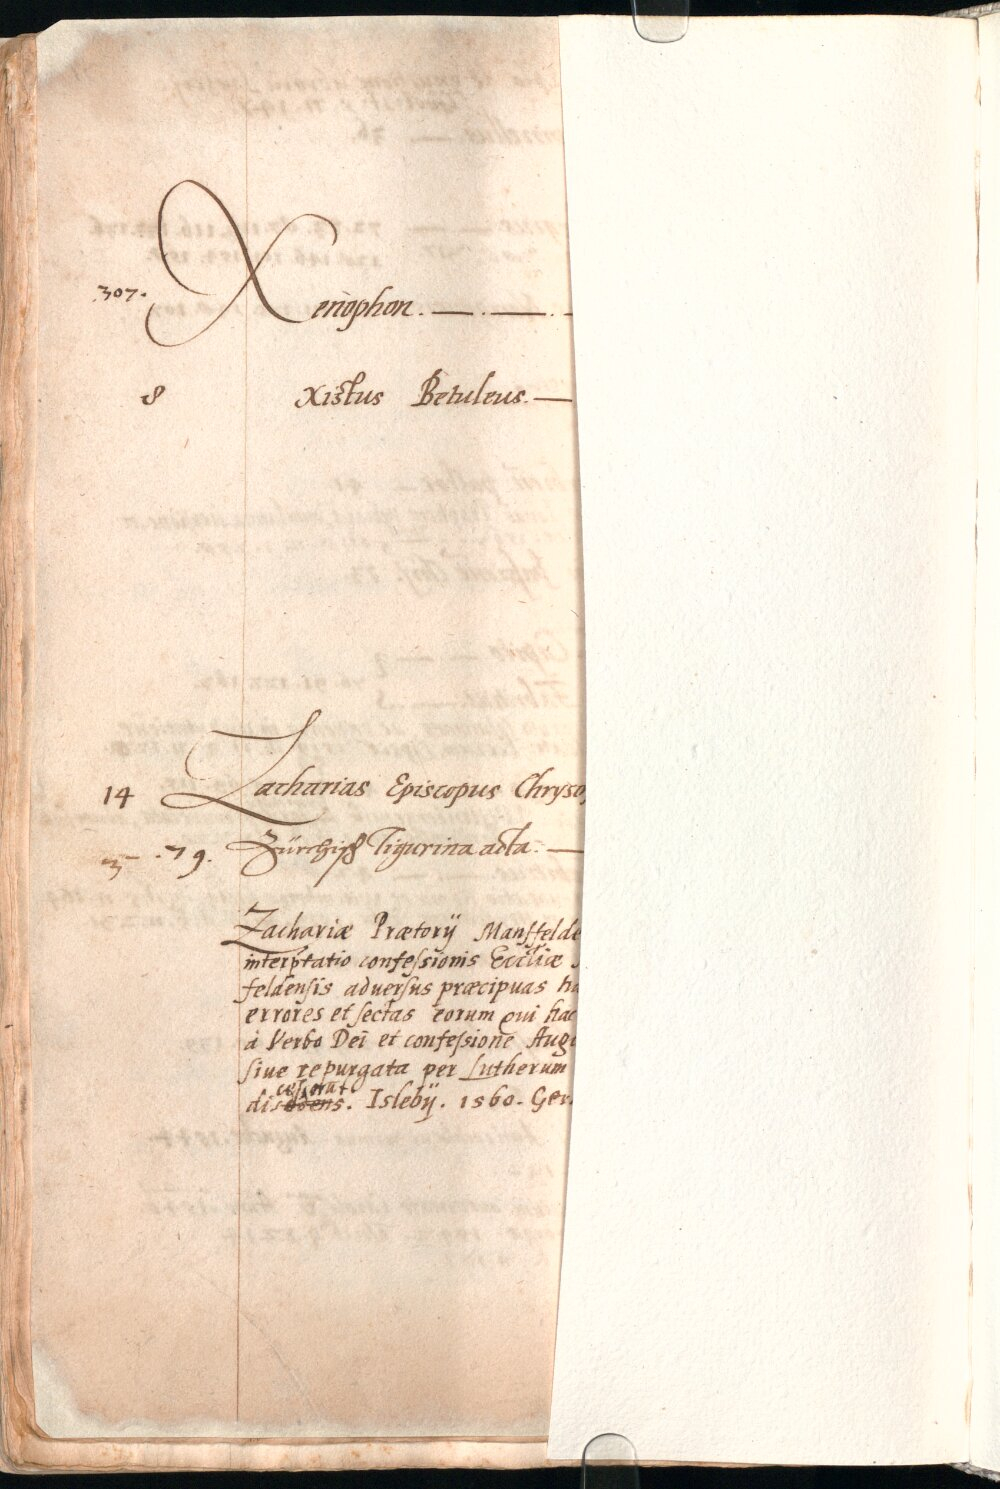 307. Xenophon. — . — . –
8 Xistus Betuleus. —
14 Zacharias Episcopus Chryso
79. Zürchisch Tigurina acta. —
Zachariæ Prætorij Mansfelde
interptatio confessionis Eccliæ
feldensis adversus præcipuas hæ
errores et sectas eorum qui hac
à Verbo Dei et confessione Aug
sive repurgata per Lutherum
cesserut
dis. Islebij. 1560. Ger.